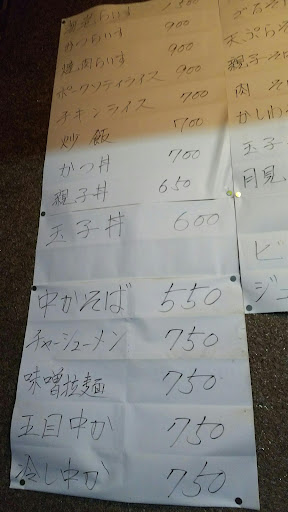 かつらいす 900
焼肉らいす 900
ポークソティライス 900
チキンライス 700
炒飯 700
かつ丼 700
親子丼 650
玉子丼 600
中かそば 550
チャーシューメン 750
味噌拉麺 750
五目中か 750
冷し中か 750
天ぷらそ
親子そ
肉そ
かしわ
玉子
月見
ビ
ジュ